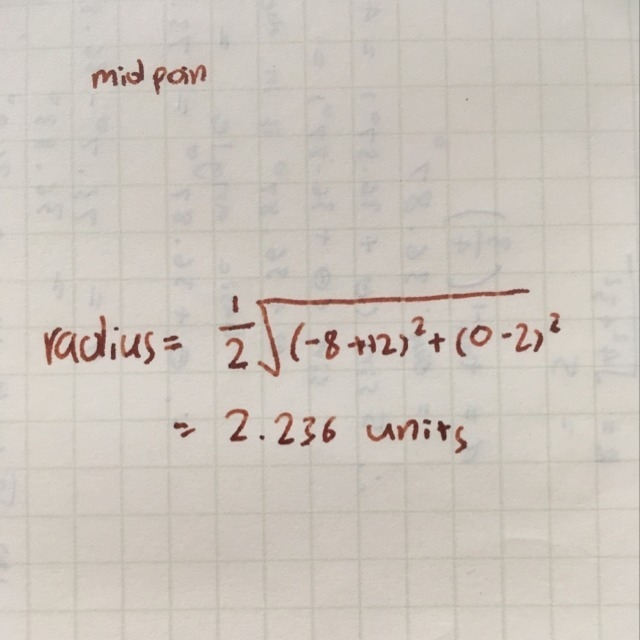 mid poin
radius = 1/2 √(-8+12)² + (0-2)²
= 2.236 units